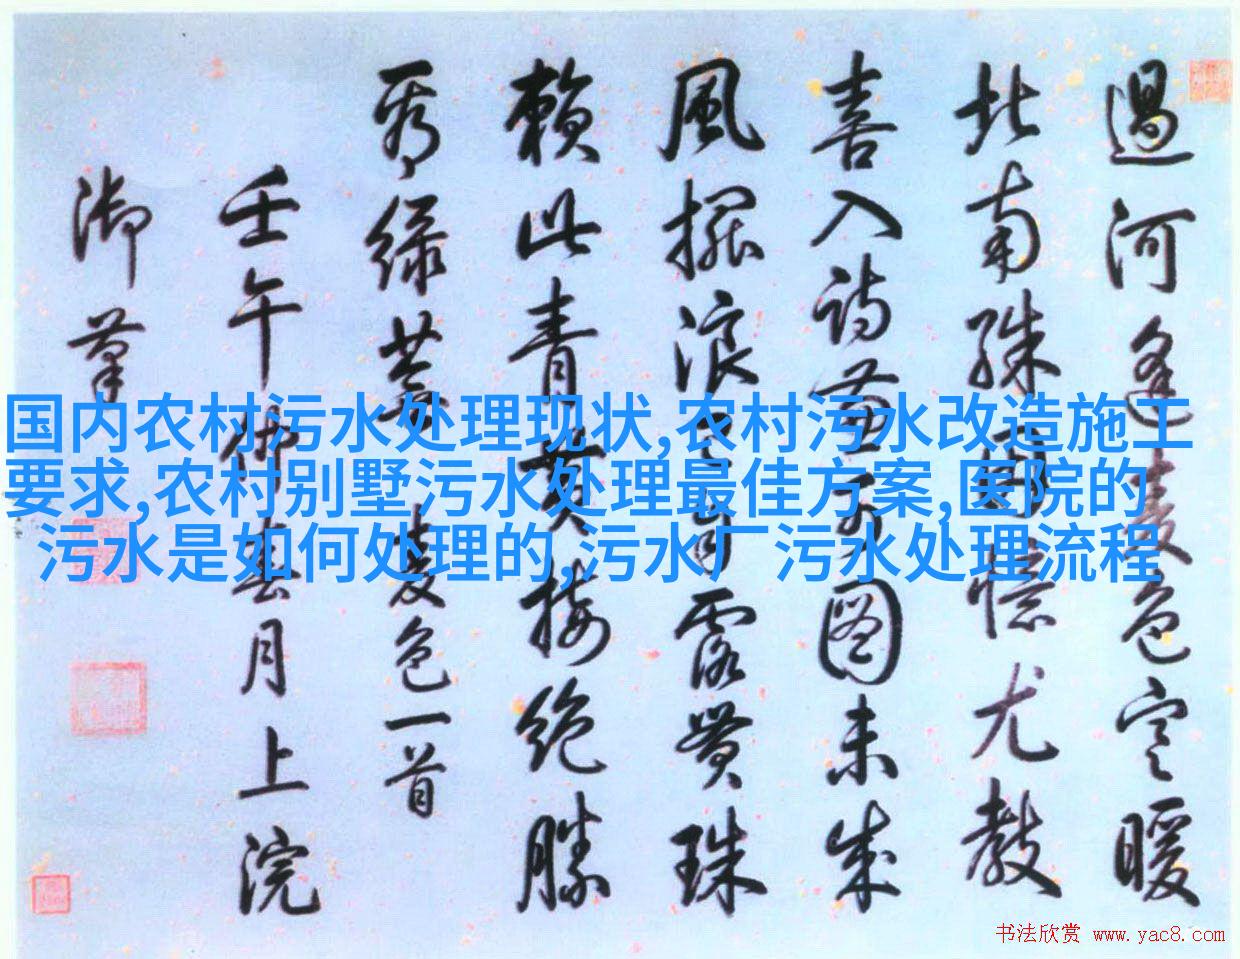 過河逢麥色寒暖
北南殊憶尤教
喜入詩畫圖未成
風擺浪有露貫珠
賴此青黃接絕勝
秀綠蕪 麥色一首
壬午仲春月上浣
御筆
国内农村污水处理现状,农村污水改造施工
要求,农村别墅污水处理最佳方案,医院的
污水是如何处理的,污水厂污水处理流程
书法欣赏 www.yac8.com